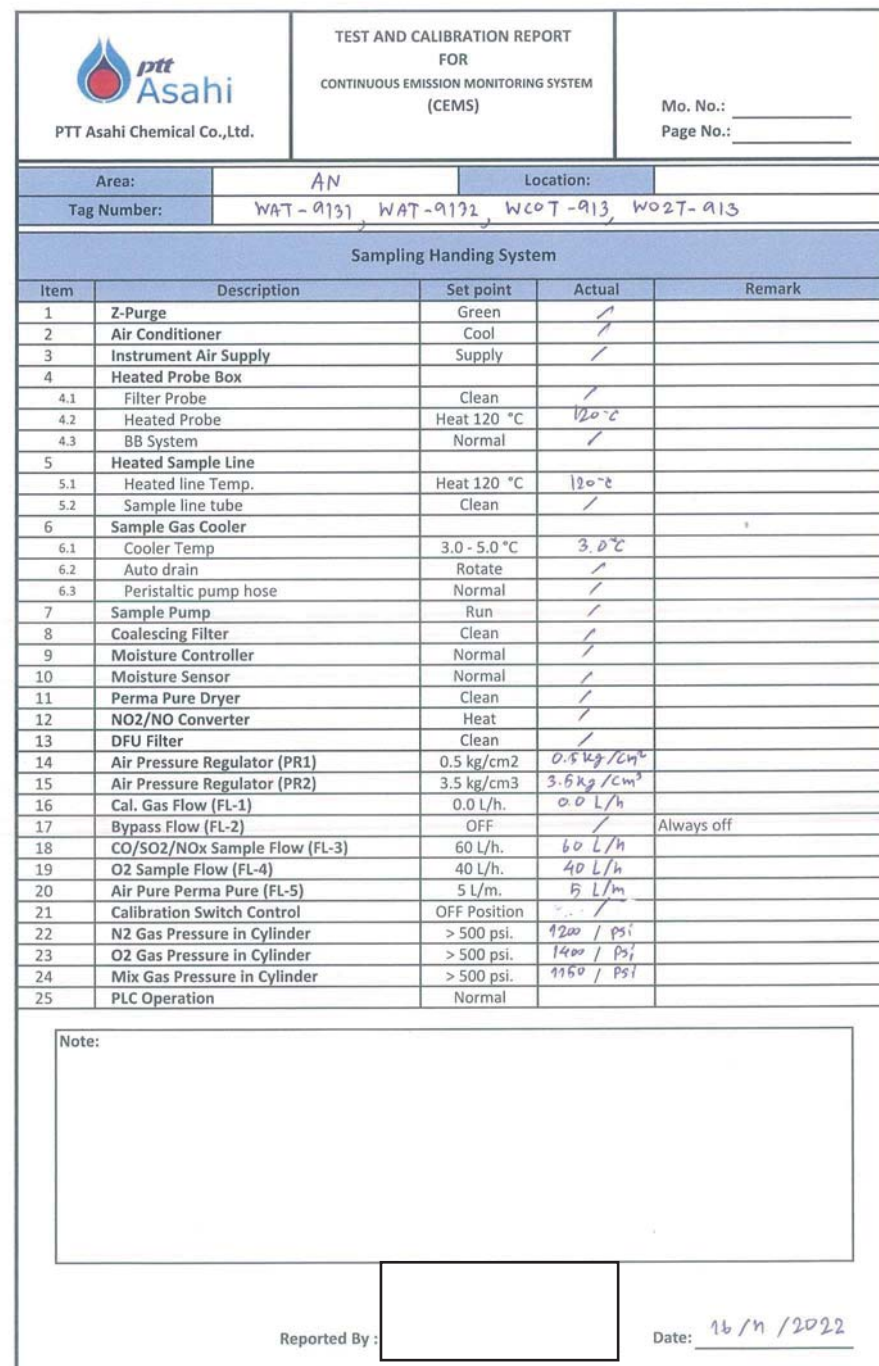 ptt
Asahi
PTT Asahi Chemical Co.,Ltd.
TEST AND CALIBRATION REPORT
FOR
CONTINUOUS EMISSION MONITORING SYSTEM
(CEMS)
Mo. No.:
Page No.:
Area: AN Location:
Tag Number: WAT-9131, WAT-9132, WCOT-913, WO2T-913
Sampling Handing System
Item Description Set point Actual Remark
1 Z-Purge Green /
2 Air Conditioner Cool /
3 Instrument Air Supply Supply /
4 Heated Probe Box
4.1 Filter Probe Clean /
4.2 Heated Probe Heat 120 °C 120°C
4.3 BB System Normal /
5 Heated Sample Line
5.1 Heated line Temp. Heat 120 °C 120°C
5.2 Sample line tube Clean /
6 Sample Gas Cooler
6.1 Cooler Temp 3.0 - 5.0 °C 3.0°C
6.2 Auto drain Rotate /
6.3 Peristaltic pump hose Normal /
7 Sample Pump Run /
8 Coalescing Filter Clean /
9 Moisture Controller Normal /
10 Moisture Sensor Normal /
11 Perma Pure Dryer Clean /
12 NO2/NO Converter Heat /
13 DFU Filter Clean /
14 Air Pressure Regulator (PR1) 0.5 kg/cm2 0.5 kg/cm²
15 Air Pressure Regulator (PR2) 3.5 kg/cm3 3.5 kg/cm³
16 Cal. Gas Flow (FL-1) 0.0 L/h. 0.0 L/h
17 Bypass Flow (FL-2) OFF / Always off
18 CO/SO2/NOx Sample Flow (FL-3) 60 L/h. 60 L/h
19 O2 Sample Flow (FL-4) 40 L/h. 40 L/h
20 Air Pure Perma Pure (FL-5) 5 L/m. 5 L/m
21 Calibration Switch Control OFF Position /
22 N2 Gas Pressure in Cylinder > 500 psi. 1200 / psi
23 O2 Gas Pressure in Cylinder > 500 psi. 1400 / psi
24 Mix Gas Pressure in Cylinder > 500 psi. 1150 / psi
25 PLC Operation Normal
Note:
Reported By :
Date: 16/11/2022